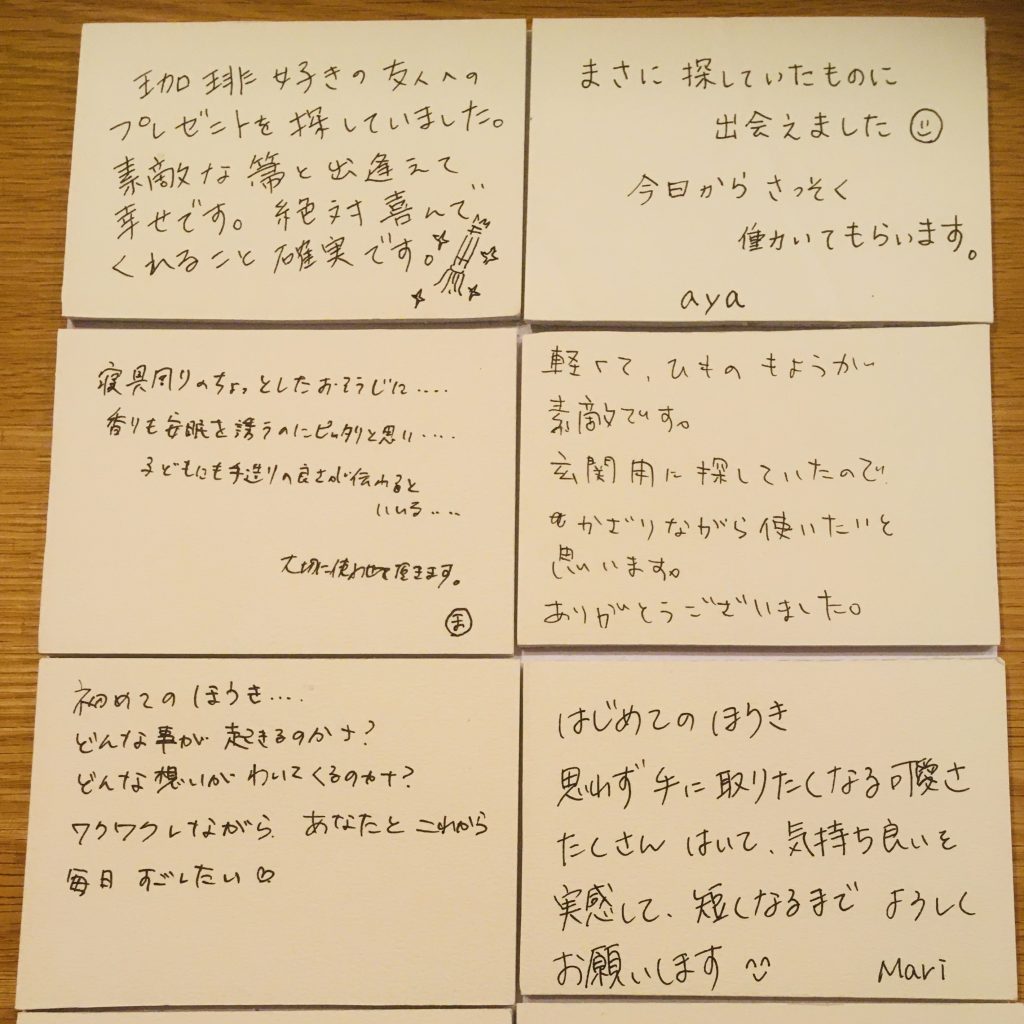 珈琲好きの友人への
プレゼントを探していました。
素敵な箒と出逢えて
幸せです。絶対喜んで
くれること確実です。
まさに探していたものに
出会えました
今日からさっそく
働いてもらいます。
aya
寝具周りのちょっとしたおそうじに....
香りも安眠を誘うのにピッタリと思い....
子どもにも手造りの良さが伝わると
いいな....
大切に使わせて頂きます。
ま
軽くて、ひものもようが
素敵です。
玄関用に探していたので
かざりながら使いたいと
思います。
ありがとうございました。
初めてのほうき....
どんな事が起きるのかナ?
どんな想いがわいてくるのかナ?
ワクワクしながら あなたとこれから
毎日すごしたい♡
はじめてのほうき
思わず手に取りたくなる可愛さ
たくさんはいて、気持ち良いを
実感して、短くなるまでよろしく
お願いします
Mari